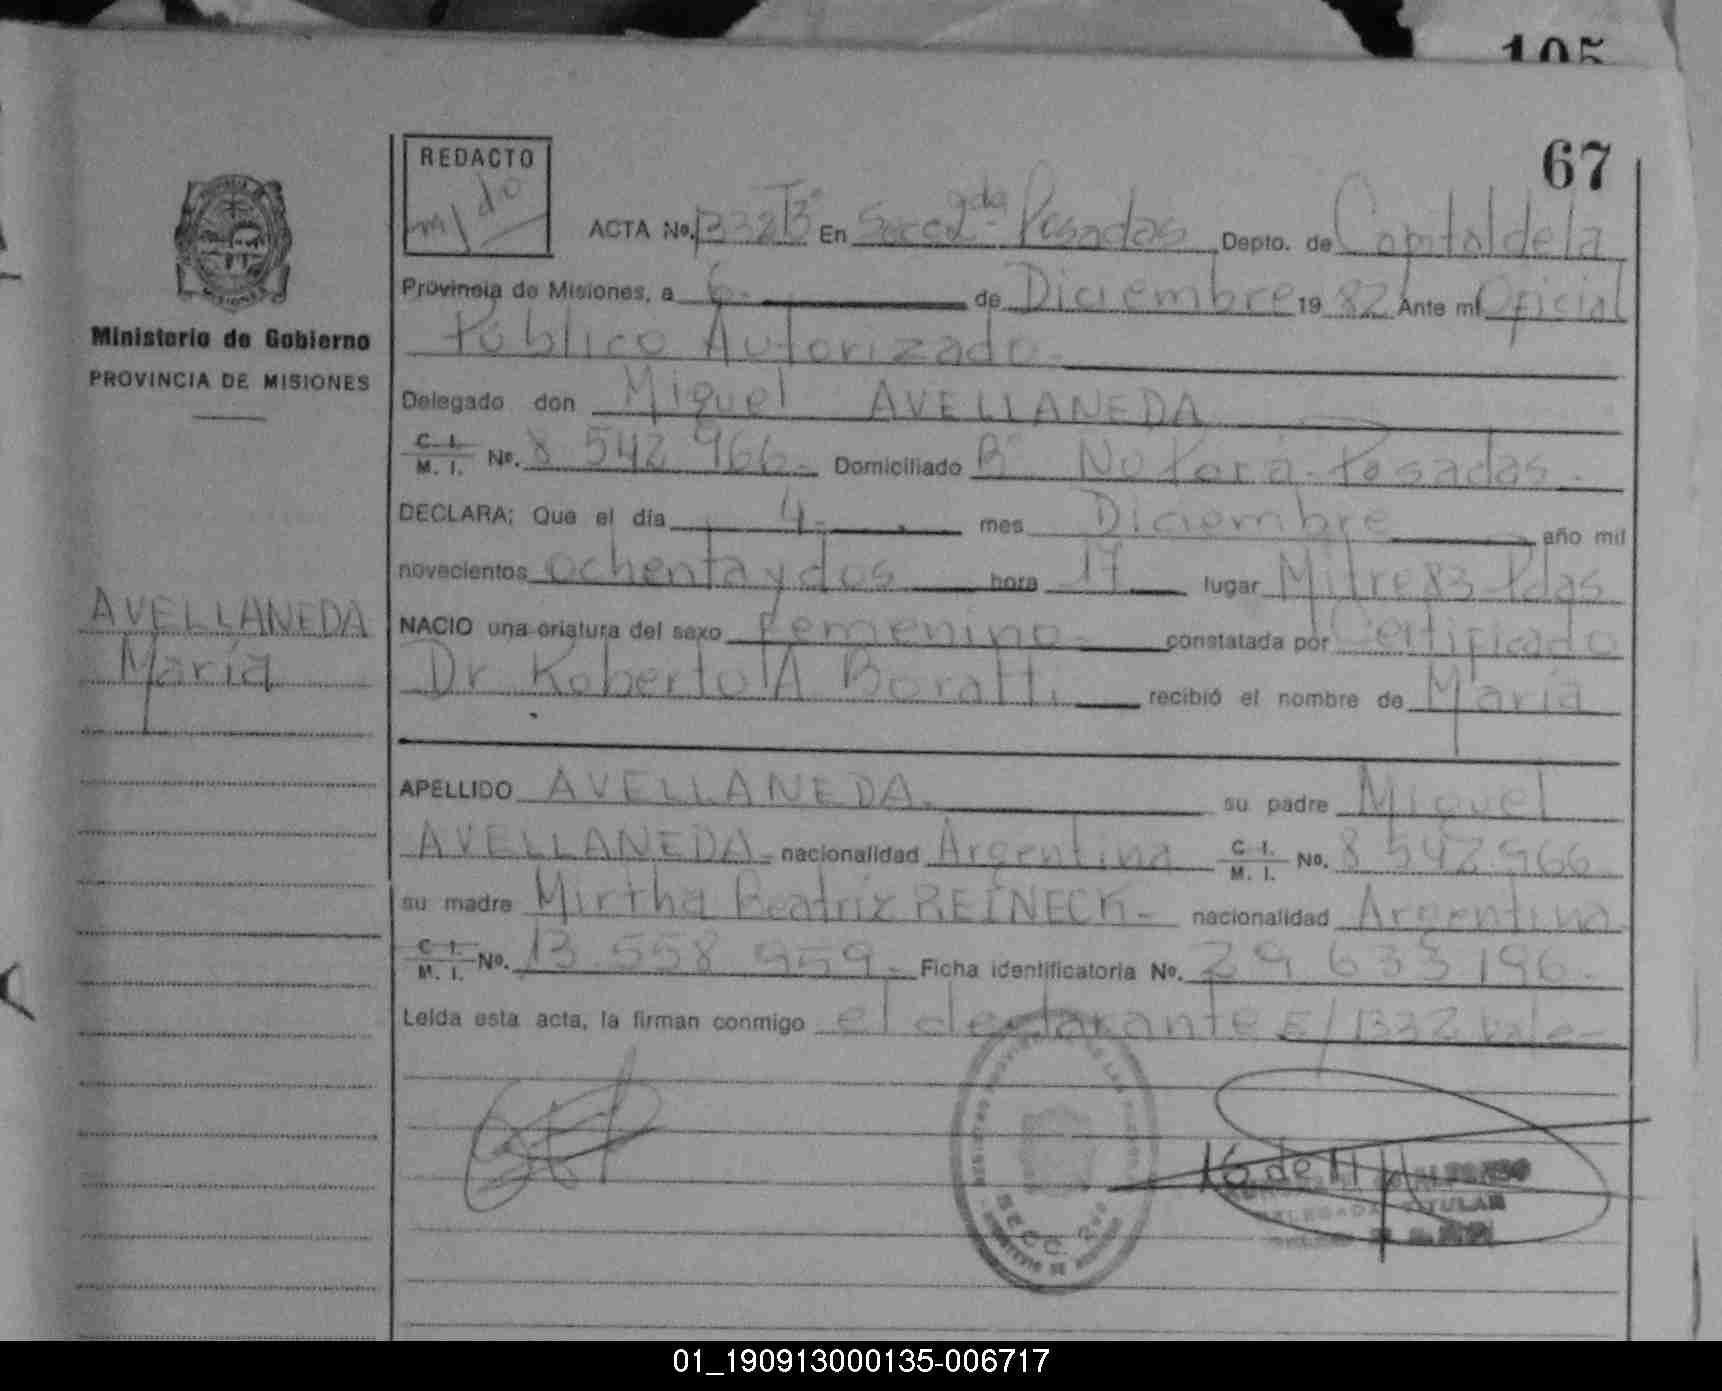 105
67
REDACTO
ACTA No. 1332 Tº 3 En Secc 2da Posadas Depto. de Capital de la
Provincia de Misiones, a 6 de Diciembre 1982 Ante mí Oficial
Público Autorizado
Ministerio de Gobierno
PROVINCIA DE MISIONES
Delegado don Miguel AVELLANEDA
C. I. M. I. No. 8 542 966 Domiciliado Bº Posadas
DECLARA; Que el día 4 mes Diciembre año mil
novecientos ochenta y dos hora 17 lugar Mitre 83 Pdas
AVELLANEDA
María
NACIO una criatura del sexo femenino constatada por Certificado
Dr Roberto A Boratti recibió el nombre de María
APELLIDO AVELLANEDA su padre Miguel
AVELLANEDA nacionalidad Argentina C. I. M. I. No. 8 542 966
su madre Mirtha Beatriz REINECK nacionalidad Argentina
C. I. M. I. No. 13 558 959 Ficha identificatoria No. 29 633 196
Leída esta acta, la firman conmigo el declarante E/1332 Vale
SECC 2da
TITULAR
01_190913000135-006717